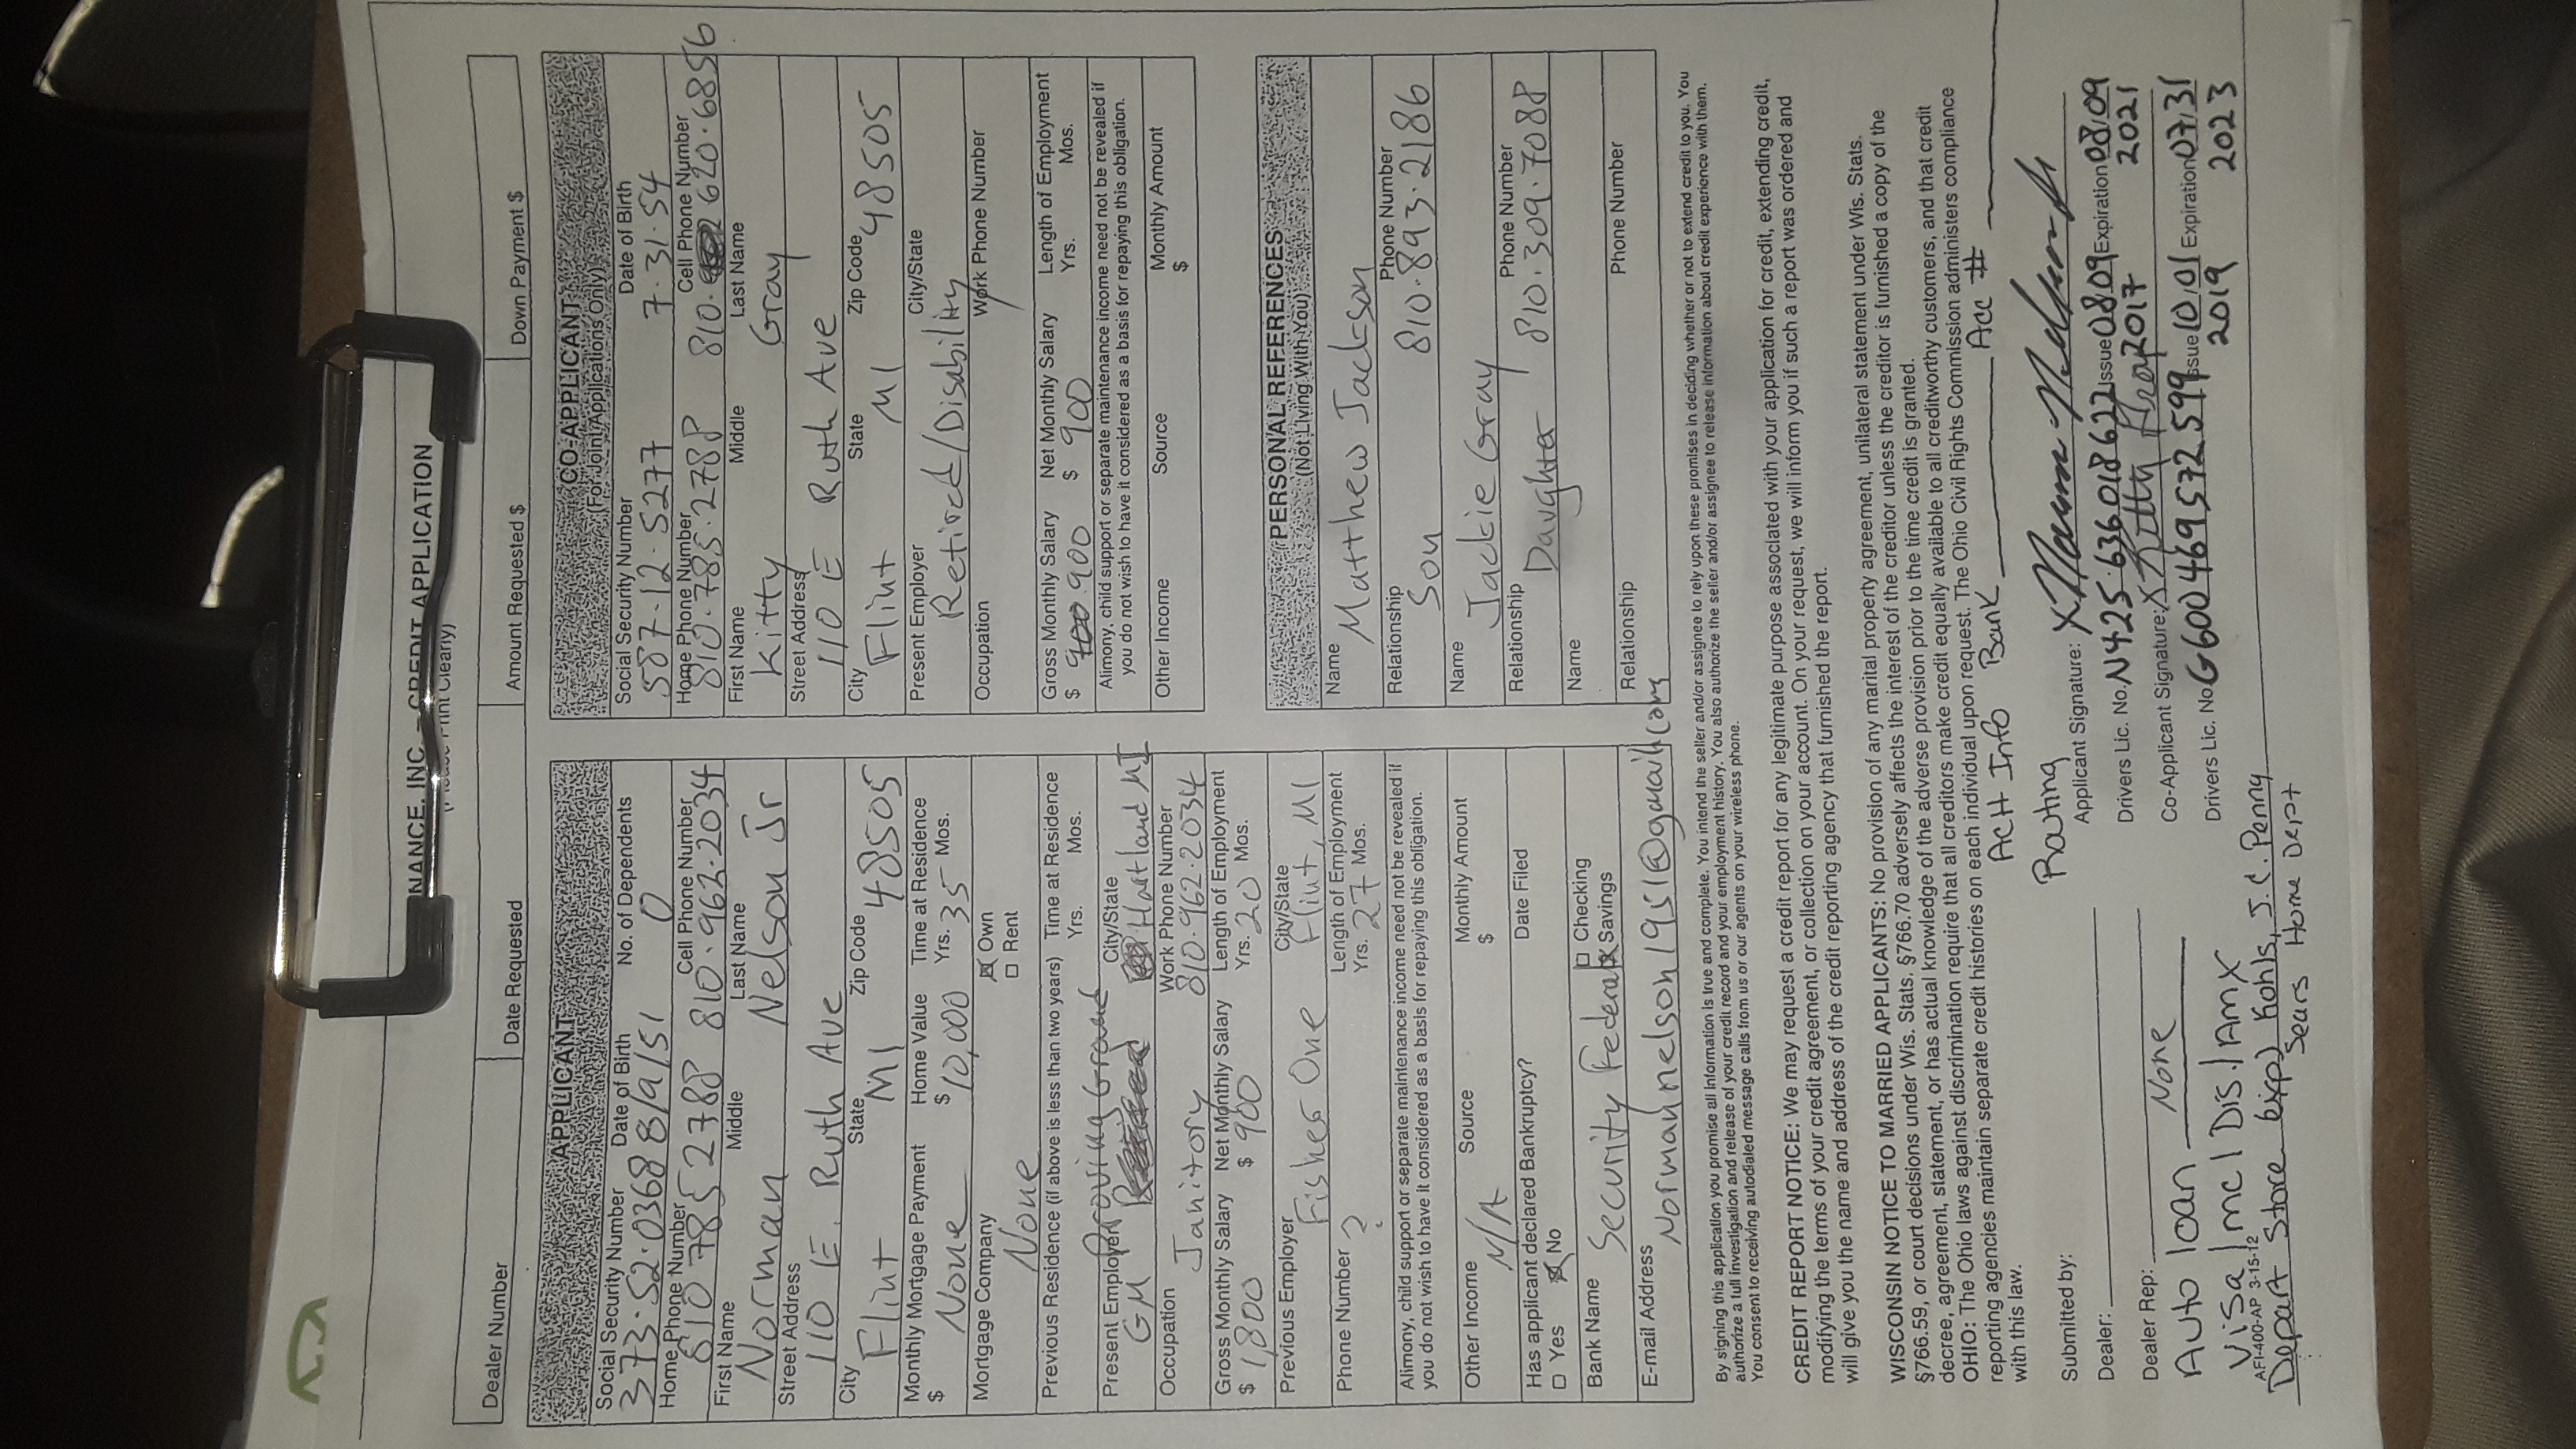 NANCE, INC. – CREDIT APPLICATION
Print Clearly)
Dealer Number
Date Requested
Amount Requested $
Down Payment $
APPLICANT
Social Security Number Date of Birth No. of Dependents
373·52·0368 8/9/51 0
Home Phone Number Cell Phone Number
810 785 2788 810·962·2034
First Name Middle Last Name
Norman Nelson Jr
Street Address
110 E. Ruth Ave
City State Zip Code
Flint MI 48505
Monthly Mortgage Payment Home Value Time at Residence
$ None $ 10,000 Yrs. 35 Mos.
Mortgage Company Own
None Rent
Previous Residence (if above is less than two years) Time at Residence
Yrs. Mos.
Present Employer City/State
GM Proving Ground
Occupation Work Phone Number
Janitory 810·962·2034
Gross Monthly Salary Net Monthly Salary Length of Employment
$ 1,800 $ 900 Yrs. 20 Mos.
Previous Employer City/State
Fisher One Flint, MI
Phone Number Length of Employment
? Yrs. 27 Mos.
Alimony, child support or separate maintenance income need not be revealed if
you do not wish to have it considered as a basis for repaying this obligation.
Other Income Source Monthly Amount
N/A $
Has applicant declared Bankruptcy? Date Filed
Yes No
Bank Name Checking
Security Federal Savings
E-mail Address
normannelson1951@gmail.com
CO-APPLICANT
(For Joint Applications Only)
Social Security Number Date of Birth
587·12·5277 7·31·54
Home Phone Number Cell Phone Number
810·785·2788 810· 620·6856
First Name Middle Last Name
Kitty Gray
Street Address
110 E Ruth Ave
City State Zip Code
Flint MI 48505
Present Employer City/State
Retired/Disability
Occupation Work Phone Number
Gross Monthly Salary Net Monthly Salary Length of Employment
$ 900 $ 900 Yrs. Mos.
Alimony, child support or separate maintenance income need not be revealed if
you do not wish to have it considered as a basis for repaying this obligation.
Other Income Source Monthly Amount
$
PERSONAL REFERENCES
(Not Living With You)
Name
Matthew Jackson
Relationship Phone Number
Son 810·893·2186
Name
Jackie Gray
Relationship Phone Number
Daughter 810·309·7088
Name
Relationship Phone Number
By signing this application you promise all information is true and complete. You intend the seller and/or assignee to rely upon these promises in deciding whether or not to extend credit to you. You
authorize a full investigation and release of your credit record and your employment history. You also authorize the seller and/or assignee to release information about credit experience with them.
You consent to receiving autodialed message calls from us or our agents on your wireless phone.
CREDIT REPORT NOTICE: We may request a credit report for any legitimate purpose associated with your application for credit, extending credit,
modifying the terms of your credit agreement, or collection on your account. On your request, we will inform you if such a report was ordered and
will give you the name and address of the credit reporting agency that furnished the report.
WISCONSIN NOTICE TO MARRIED APPLICANTS: No provision of any marital property agreement, unilateral statement under Wis. Stats.
§766.59, or court decisions under Wis. Stats. §766.70 adversely affects the interest of the creditor unless the creditor is furnished a copy of the
decree, agreement, statement, or has actual knowledge of the adverse provision prior to the time credit is granted.
OHIO: The Ohio laws against discrimination require that all creditors make credit equally available to all creditworthy customers, and that credit
reporting agencies maintain separate credit histories on each individual upon request. The Ohio Civil Rights Commission administers compliance
with this law.
ACH Info Bank Acc #
Routing
Submitted by:
Dealer:
Dealer Rep: None
Auto loan
Visa/mc/Dis/AmX
AFI-400-AP 3-15-12
Depart Store exp) Kohls, J.C. Penny
Sears Home Depot
Applicant Signature: X
Drivers Lic. No. N425·636018622 Issue 08,09 2017 Expiration 08,09 2021
Co-Applicant Signature: X Kitty Gray
Drivers Lic. No. G600469572599 Issue 10,01 2019 Expiration 07,31 2023